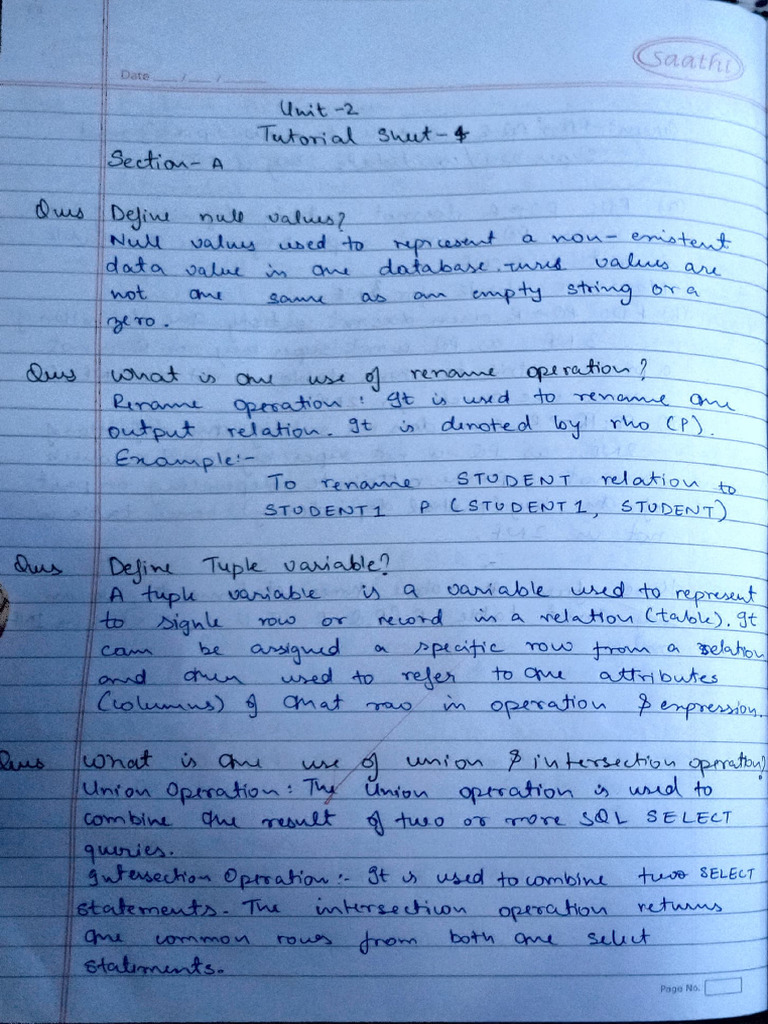 Saathi
Date ___/___/______
Unit -2
Tutorial Sheet-1
Section- A
Ques Define null values?
Null values used to represent a non-existent
data value in the database. These values are
not the same as an empty string or a
zero.
Ques What is the use of rename operation?
Rename operation: It is used to rename the
output relation. It is denoted by rho (P).
Example:-
To rename STUDENT relation to
STUDENT1 P (STUDENT1, STUDENT)
Ques Define Tuple variable?
A tuple variable is a variable used to represent
to signle row or record in a relation (table). It
can be assigned a specific row from a relation
and then used to refer to the attributes
(columns) of that row in operation & expression.
Ques What is the use of union & intersection operation?
Union Operation: The Union operation is used to
combine the result of two or more SQL SELECT
queries.
Intersection Operation:- It is used to combine two SELECT
statements. The intersection operation returns
the common rows from both the select
statements.
Page No.